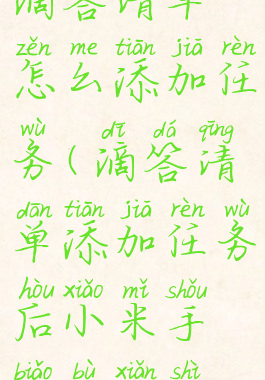 滴答清单
zěn me tiān jiā rèn
怎么添加任
wù dī dá qīng
务(滴答清
dān tiān jiā rèn wù
单添加任务
hòu xiǎo mǐ shǒu
后小米手
biǎo bù xiǎn shì